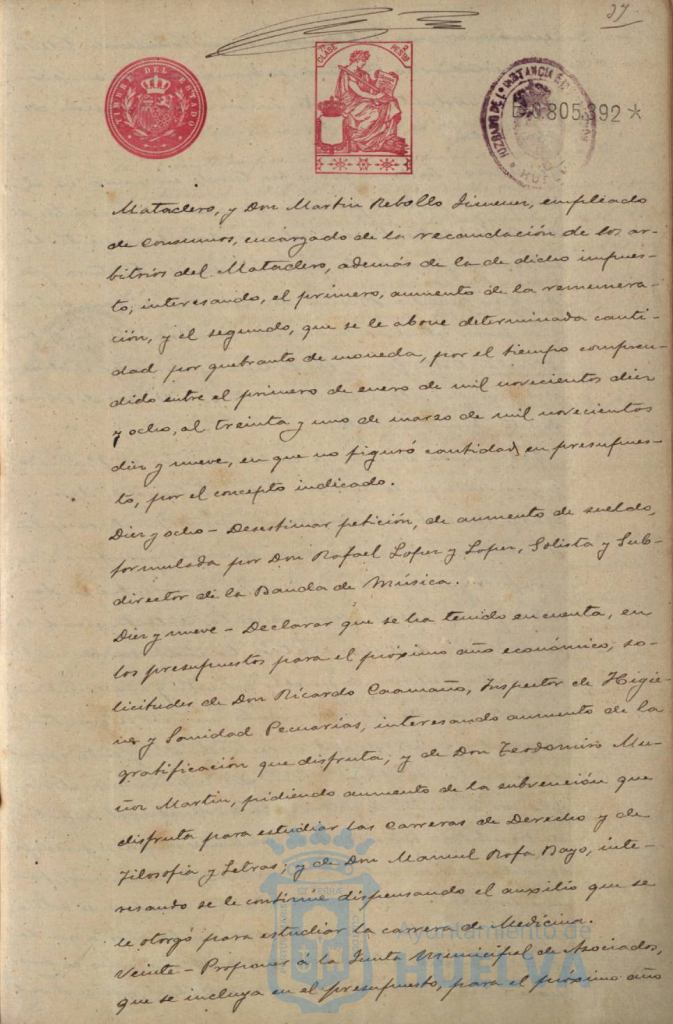 37
TIMBRE DEL ESTADO
7ª CLASE 2 PESTAS
JUZGADO DE 1ª INSTANCIA E
HUELVA
B.0.805,392 *
Matadero, y Don Martin Rebollo Jimener, empleado
de Consumos, encargado de la recaudación de los ar-
bitrios del Matadero, además de la de dicho impues-
to, interesando, el primero, aumento de la remunera-
ción, y el segundo, que se le abone determinada canti-
dad por quebranto de moneda, por el tiempo compren-
dido entre el primero de enero de mil novecientos diez
y ocho, al treinta y uno de marzo de mil novecientos
diez y nueve, en que no figuró cantidad, en presupues-
to, por el concepto indicado.
Diez y ocho – Desestimar petición, de aumento de sueldo,
formulada por Don Rafael Lopez y Lopez, Solista y Sub-
director de la Banda de Música.
Diez y nueve – Declarar que se ha tenido en cuenta, en
los presupuestos para el próximo año económico, so-
licitudes de Don Ricardo Caamaño, Inspector de Higie-
ne y Sanidad Pecuarias, interesando aumento de la
gratificación que disfruta; y de Don Teodomiro Mu-
ñoz Martin, pidiendo aumento de la subvención que
disfruta para estudiar las Carreras de Derecho y de
Filosofia y Letras; y de Don Manuel Rofa Bayo, inte-
resando se le continúe dispensando el auxilio que se
le otorgó para estudiar la carrera de Medicina.
Veinte – Proponer á la Junta Municipal de Asociados,
que se incluya en el presupuesto, para el próximo año
Ayuntamiento de
HUELVA